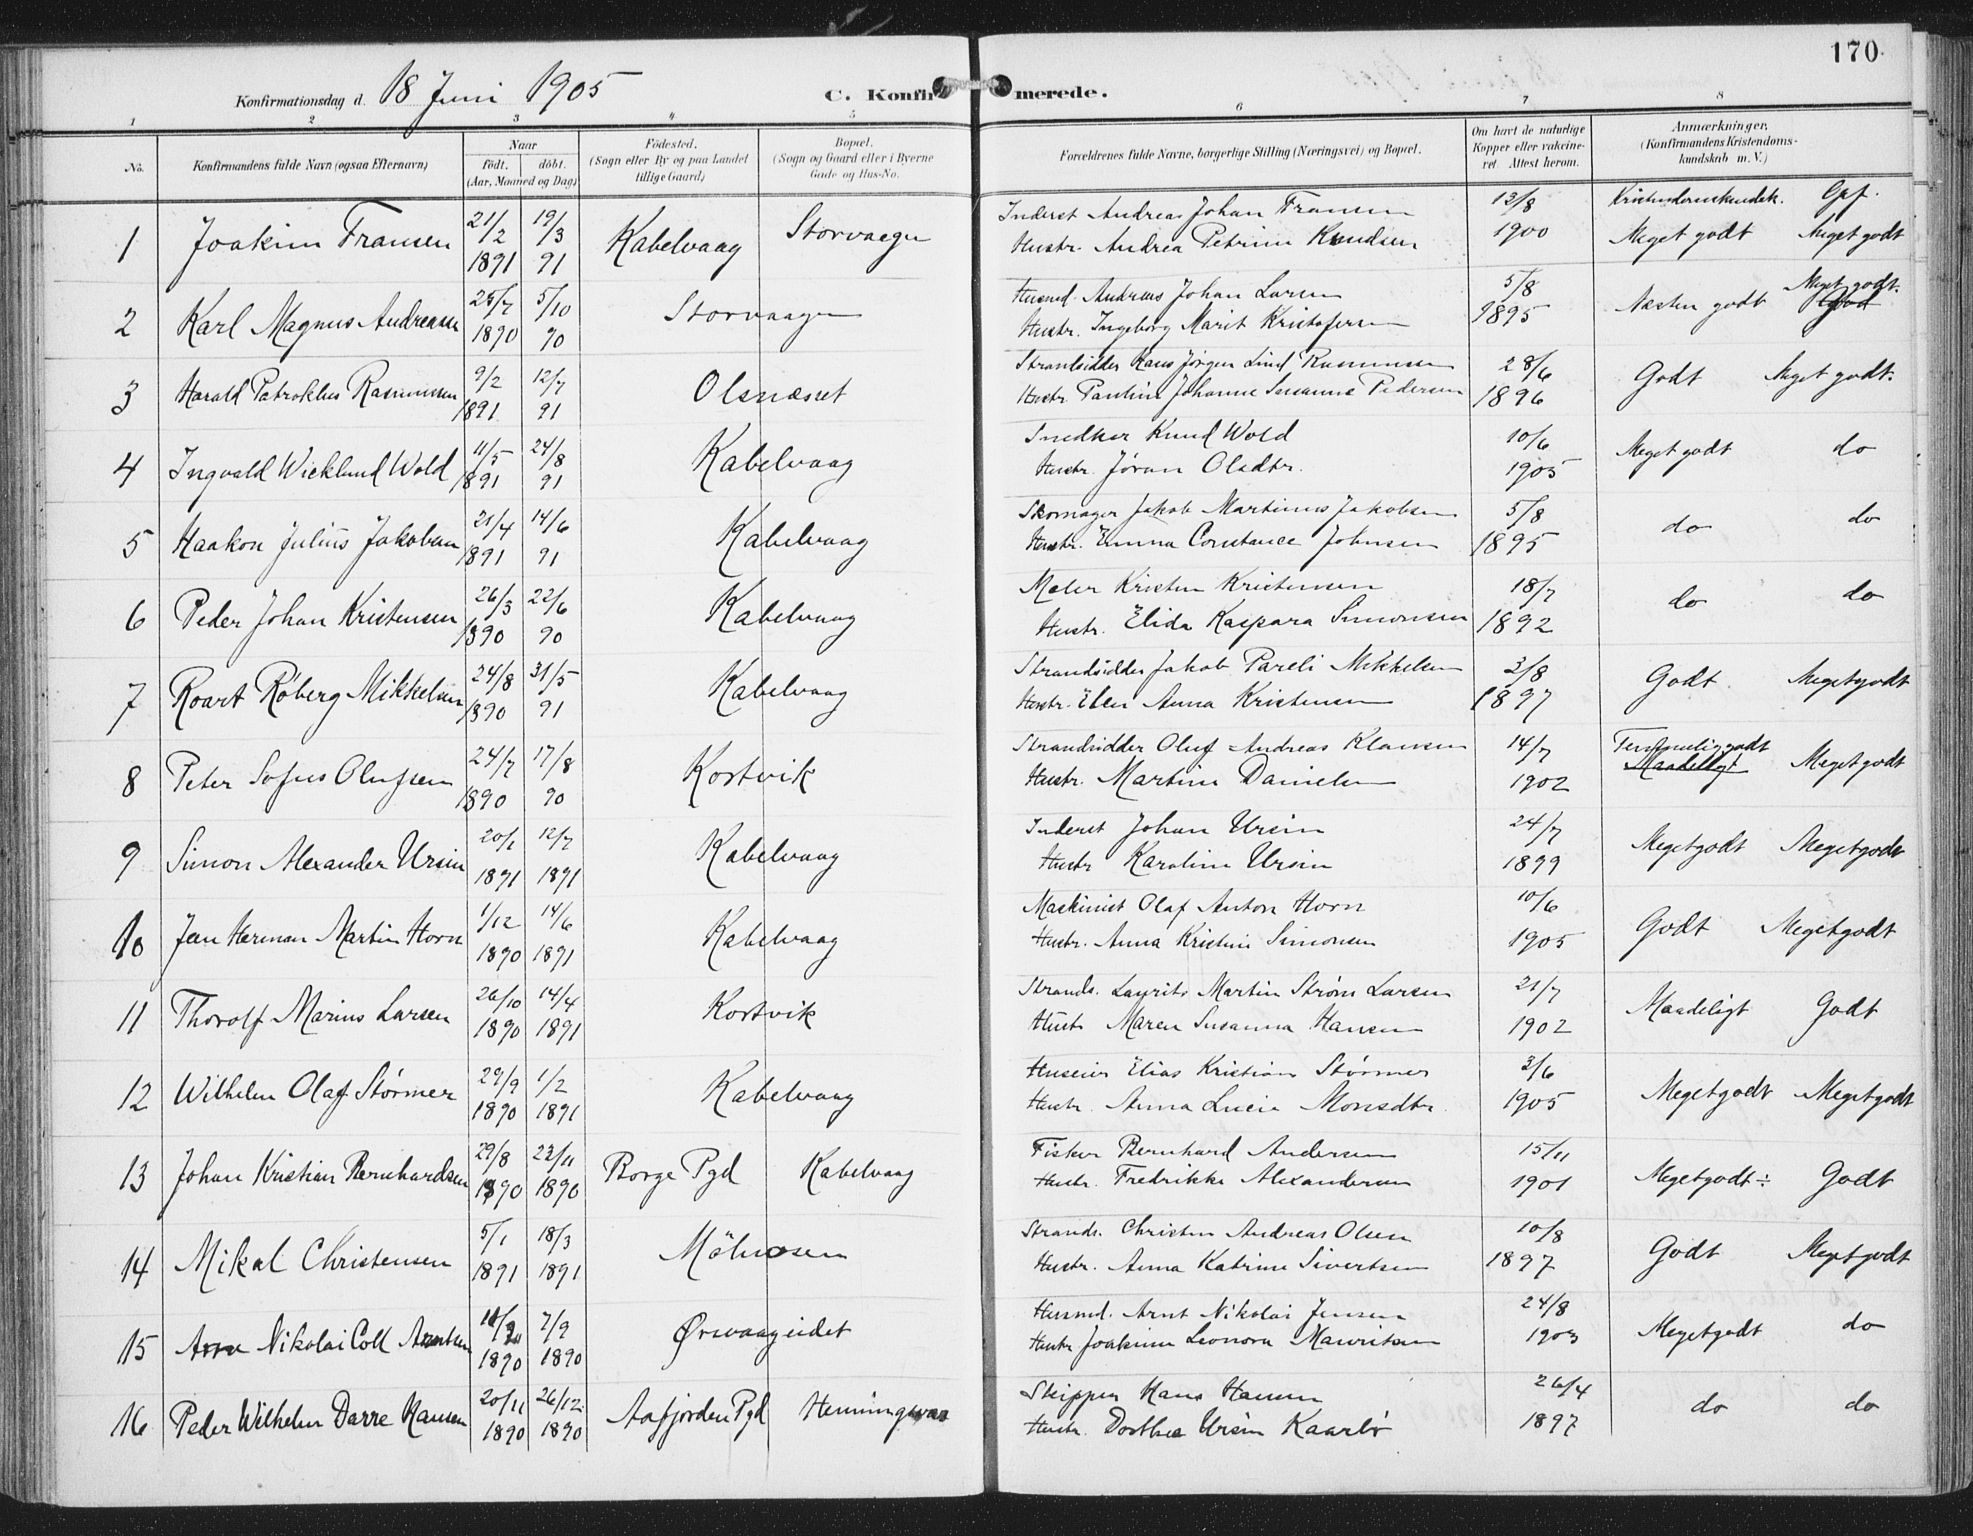 170
Konfirmationsdag d. 18 Juni 1905
C. Konfirmerede.
1 2 3 4 5 6 7 8
No. Konfirmandens fulde Navn (ogsaa Efternavn) Naar født. døbt. (Aar, Maaned og Dag) Födested. (Sogn eller By og paa Landet tillige Gaard) Bopæl. (Sogn og Gaard eller i Byerne Gade og Hus-No. Forældrenes fulde Navne, borgerlige Stilling (Næringsvei) og Bopæl. Om havt de naturlige Kopper eller vakcineret Attest herom. Anmærkninger. (Konfirmandens Kristendomskundskab m. V.)
Kristendomskundsk. Opf.
1 Joakim Fransen 21/2 1891 19/3 91 Kabelvaag Storvaagen Inderst Andreas Johan Fransen 13/8 1900 Meget godt Meget godt
Hustr. Andrea Petrine Knudsen
2 Karl Magnus Andreasen 25/7 1890 5/10 90 Storvaagen Husmd. Andreas Johan Larsen 5/8 1895 Næsten godt Meget godt.
Hustr. Ingeborg Marit Kristofersen
3 Harald Patroklus Rasmussen 9/2 1891 12/7 91 Olsnæsset Strandsidder Hans Jørgen Lind Rasmussen 28/6 1896 Godt Meget godt.
Hustr. Pauline Johanne Susanna Pedersen
4 Ingvald Wicklund Wold 11/5 1891 24/8 91 Kabelvaag Snedker Knud Wold 10/6 1905 Meget godt do
Hustr. Jøran Olsdtr.
5 Haakon Julius Jakobsen 21/4 1891 14/6 91 Kabelvaag Skomager Jakob Martinus Jakobsen 5/8 1895 do do
Hustr. Emma Constance Johnsen
6 Peder Johan Kristensen 26/3 1890 22/6 90 Kabelvaag Maler Kristen Kristensen 18/7 1892 do do
Hustr. Elida Kaspara Simonsen
7 Roart Røberg Mikkelsen 24/8 1890 31/5 91 Kabelvaag Strandsidder Jakob Pareli Mikkelsen 3/8 1897 Godt Megetgodt
Hustr. Elen Anna Kristensen
8 Peter Sofus Olufsen 24/7 1890 17/8 90 Kortvik Strandsidder Oluf Andreas Klausen 14/7 1902 Temmelig godt Maadeligt Megetgodt
Hustr. Martine Danielsen
9 Simon Alexander Ursin 20/1 1891 12/7 1891 Kabelvaag Inderst Johan Ursin 24/7 1899 Megetgodt Megetgodt
Hustr Karoline Ursin
10 Jen Herman Martin Horn 1/12 1890 14/6 1891 Kabelvaag Maskinist Olaf Anton Horn 10/6 1905 Godt Megetgodt
Hustr. Anna Kristine Simonsen
11 Thorolf Marius Larsen 26/10 1890 14/4 1891 Kortvik Strands. Laurits Martin Strøm Larsen 21/7 1902 Maadeligt Godt
Hustr Maren Susanna Hansen
12 Wilhelm Olaf Størmer 29/9 1890 1/2 1891 Kabelvaag Huseier Elias Kristian Størmer 3/6 1905 Megetgodt Megetgodt
Hustr. Anna Lucie Monsdtr.
13 Johan Kristian Bernhardsen 29/8 1890 23/11 1890 Borge Pgd Kabelvaag Fisker Bernhard Andersen 15/11 1901 Megetgodt ÷ Godt
Hustr. Fredrikke Alexandersen
14 Mikal Christensen 5/1 1891 18/3 1891 Mölnosen Strands. Christen Andreas Olsen 10/8 1897 Godt Megetgodt
Hustr. Anna Katrine Sivertsen
15 Nikolai Coll Arntsen 1890 7/9 1890 Ørsvaageidet Husmd. Arnt Nikolai Jensen 24/8 1903 Megetgodt do
Hustr Joakime Leonora Mauritsen
16 Peder Wilhelm Darre Hansen 20/11 1890 26/12 1890 Aafjorden Pgd Henningsvær Skipper Hans Hansen 26/4 1897 do do
Hustr. Dorthea Ursin Kaarbø